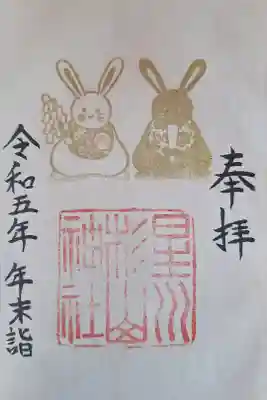 奉拝
星川
杉山
神社
令和五年 年末詣